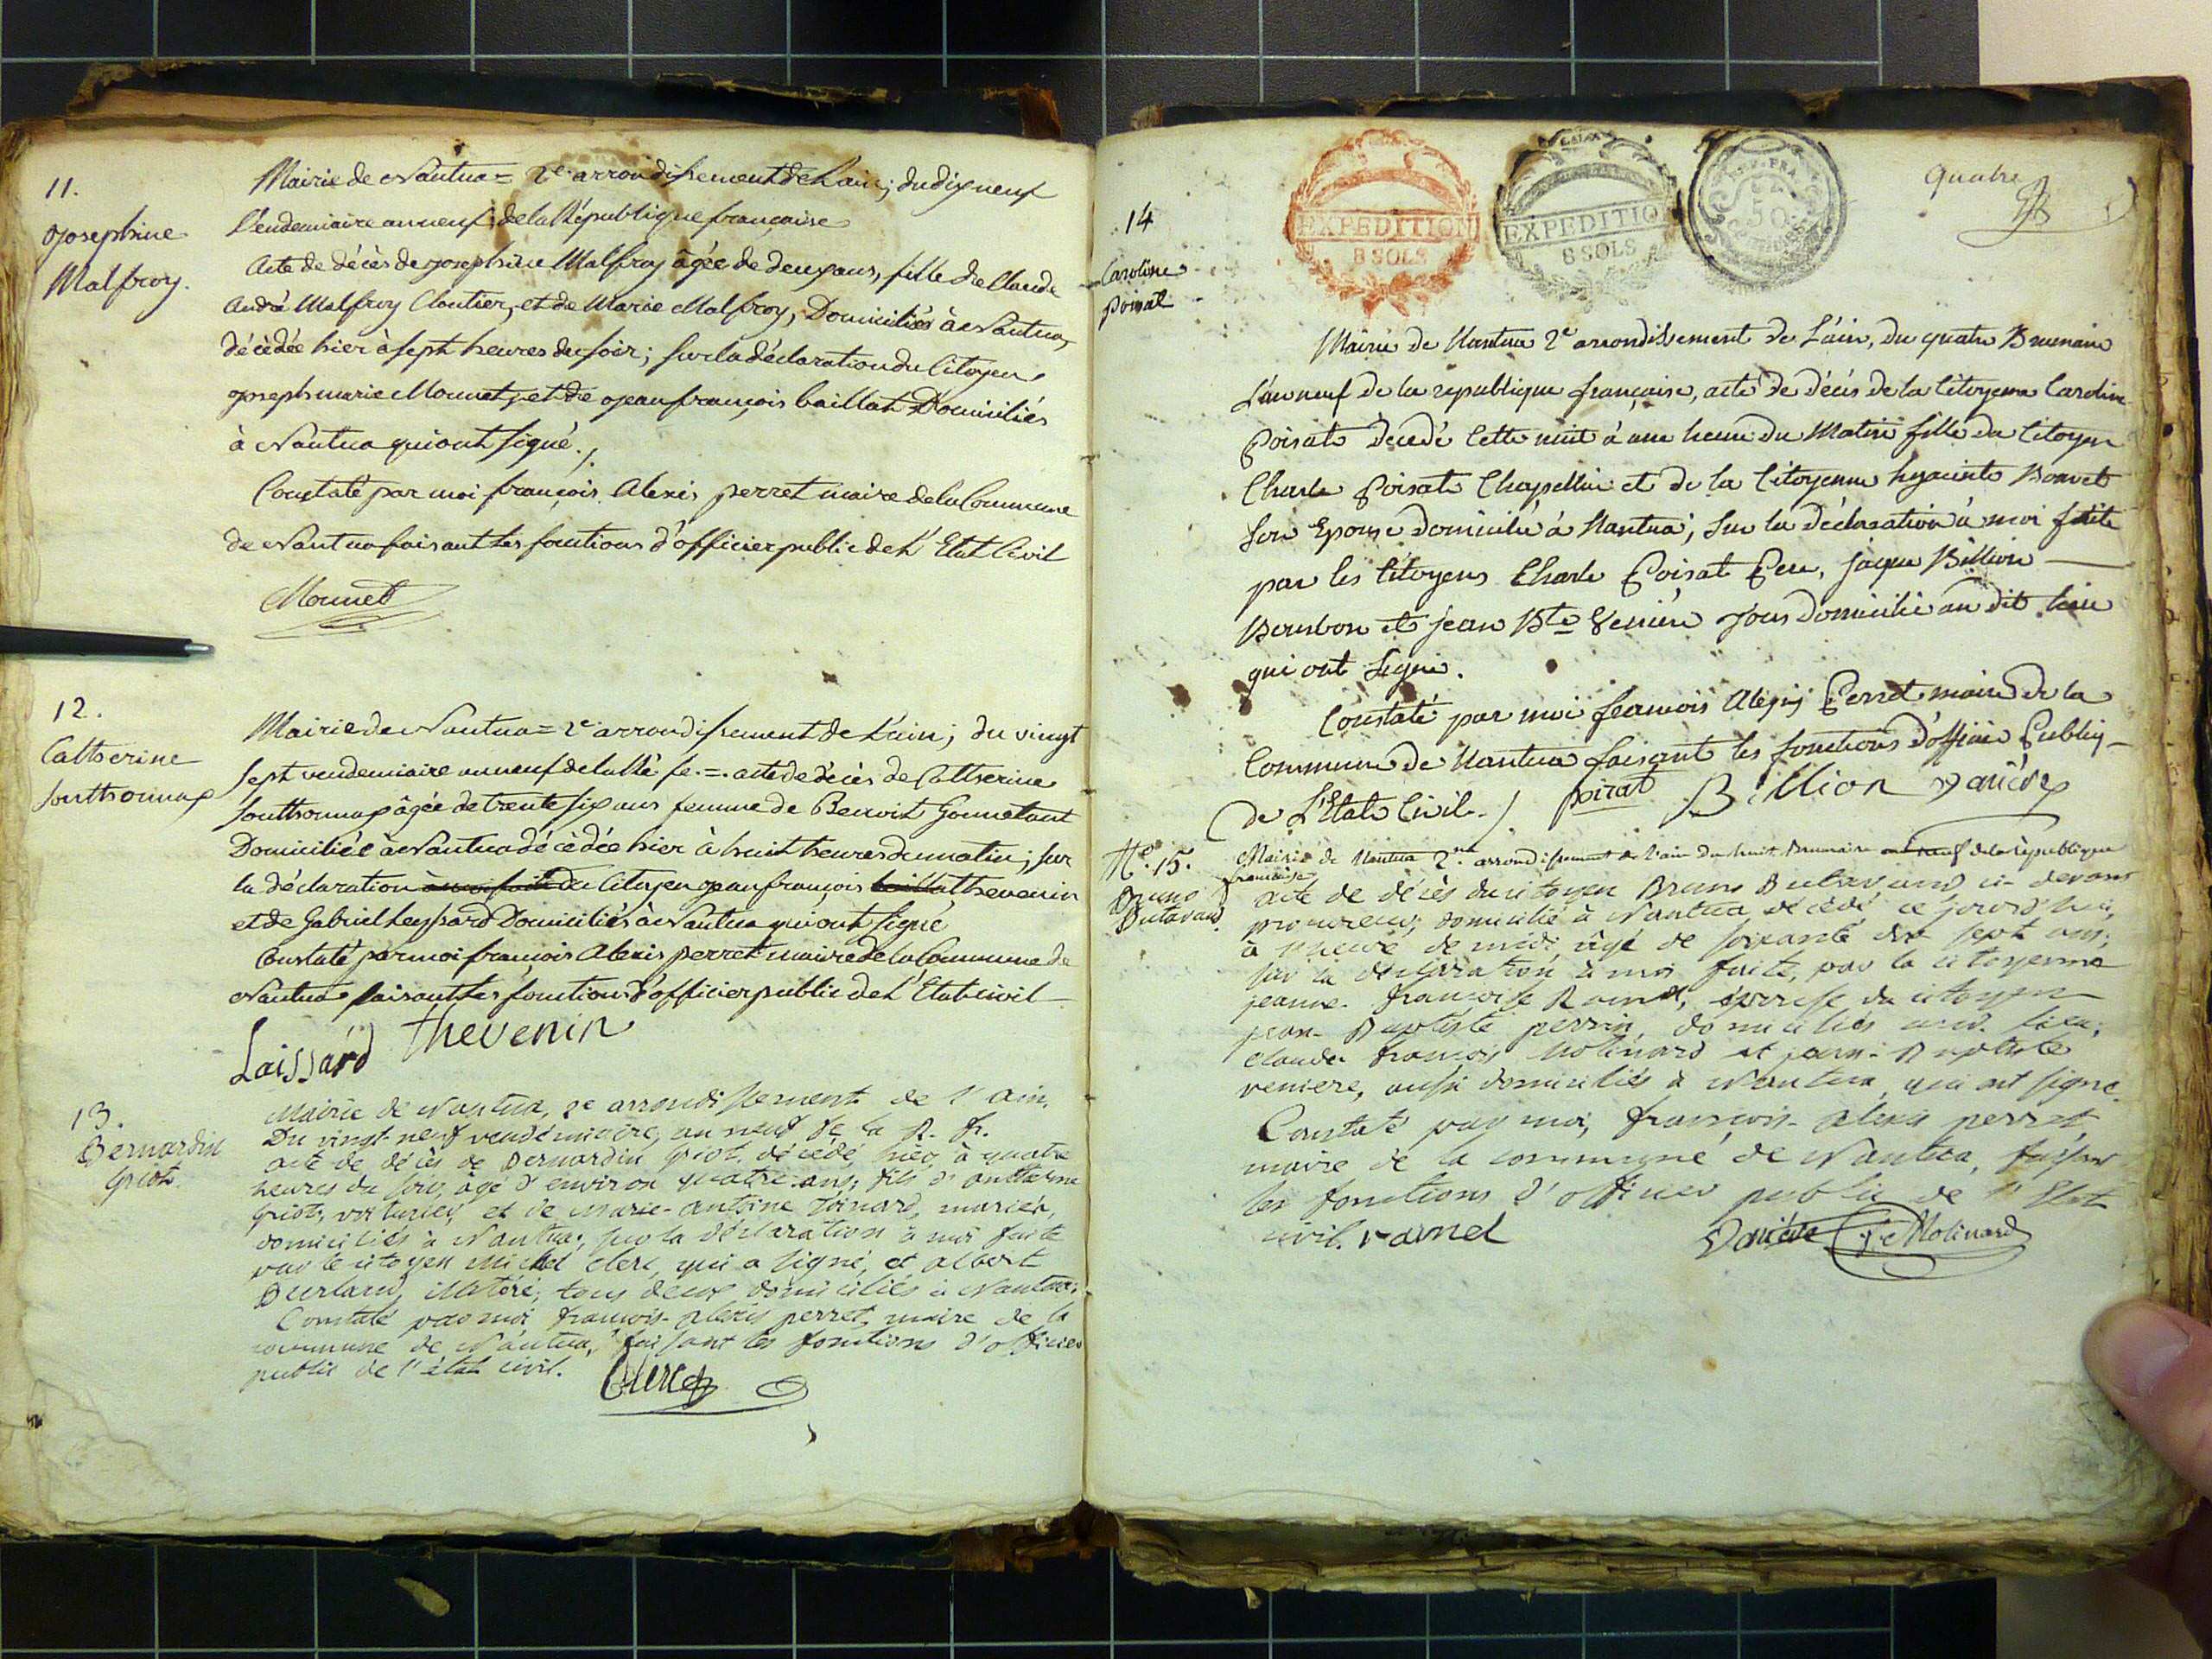 11.
Josephine
Malfroy.
Mairie de Nantua = 2e. arrondissement de L'ain; du dix neuf
Vendemiaire an neuf de la République française
Acte de décès de Josephine Malfroy âgée de deux ans, fille de Claude
André Malfroy Cloutier, et de Marie Malfroy, Domiciliés à Nantua,
décèdée hier à sept heures du soir; sur la déclaration du Citoyen
Joseph marie Mounet, et de Jean françois baillat Domiciliés
à Nantua qui ont signé./.
Constaté par moi françois Alexis perret maire de la Commune
de Nantua faisant les fonctions d'officier public de L'Etat Civil
Mounet
12.
Catherine
Jouthonnax
Mairie de Nantua = 2e arrondissement de L'ain; du vingt
sept vendemiaire an neuf de la Ré. fe. =. acte de décès de Catherine
Jouthonnax âgée de trente six ans femme de Benoit Gounetant
Domiciliée à Nantua décèdée hier à huit heures du matin; sur
la déclaration à moi faite du Citoyen Jean françois thevenin
et de Gabriel Leyssard Domiciliés à Nantua qui ont signé
Constaté par moi françois Alexis perret maire de la Commune de
Nantua faisant les fonctions d'officier public de L'Etat civil
Laissard thevenin
13.
Bernardin
Griot.
Mairie de Nantua, 2e arrondissement de l'ain.
Du vingt-neuf vendémiaire, an neuf de la R. fr.
acte de décès de Bernardin Griot, décédé hier, à quatre
heures du soir, âgé d'environ quatre ans, fils d'anthelme
Griot, voiturier, et de Marie-antoine Toinard, mariés,
domiciliés à Nantua; sur la déclaration à moi faite
par le citoyen Michel clerc, qui a signé, et albert
Burlaud, illetéré, tous deux domiciliés à Nantua;
Constaté par moi françois-alexis perret, maire de la
commune de Nantua, faisant les fonctions d'officier
public de l'état civil.
Clerc
quatre
EXPEDITION
8 SOLS
EXPEDITION
8 SOLS
14
Caroline
Poisat
Mairie de Nantua 2e arrondissement de L'ain, du quatre Brumaire
L'an neuf de la republique française, acte de décès de la Citoyenne Caroline
Poisat decedé Cette nuit à une heure du Matin fille du Citoyen
Charle Poisat Chapellier et de la Citoyenne hyacinte Bonvet
Son Epouse domicilié à Nantua; Sur la déclaration à moi faite
par les Citoyens Charle Poisat Pere, jaque Billion
Bourbon et jean Bte Venière tous domicilié au dit lieu
qui ont Signé.
Constaté par moi françois Alexis Perret maire de la
Commune de Nantua faisant les fonctions d'officier Public
de L'Etat Civil./ poizat Billion Vanière
No. 15.
Bruno
Butavand.
Mairie de Nantua 2me. arrondissement de l'ain du huit Brumaire an neuf de la République
française
acte de décès du citoyen Bruno Butavand, ci-devant
procureur, domicilié à Nantua, décédé ce jourd'hui,
à l'heure de midi, âgé de soixante dix sept ans;
sur la déclaration à moi faite, par la citoyenne
jeanne-françoise Ramel, épouse du citoyen
jean-Baptiste perrin, domiciliés aud. lieu;
claude françois Molinard et jean-Baptiste
veniere, aussi domiciliés à Nantua, qui ont signé.
Constaté par moi, françois-alexis perret
maire de la commune de Nantua, faisant
les fonctions d'officier public de l'Etat
civil. ramel Vanière Molinard